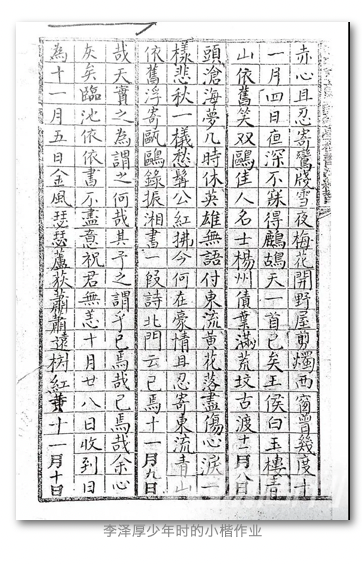 赤心且忍寄鸞牋雪夜梅花開野屋剪燭西窗曾幾度十
一月四日亱深不寐得鷓鴣天一首已矣王侯白玉樓青
山依舊笑双鷗佳人名士楊州債葉滿荒坟古渡十一月八日
頭滄海夢几時休英雄無語付東流黃花落盡傷心淚一
樣悲秋一樣愁髯公紅拂今何在豪情且忍寄東流青山
依舊浮鷗錄振湘書一段詩北門云已焉十一月九日
哉天實之為謂之何哉其予之謂乎已焉哉已焉哉余心
灰矣臨池依依書不盡意祝君無恙十月廿八日收到日
為十一月五日金風瑟瑟蘆荻蕭蕭遠樹紅黃十一月十日
李泽厚少年时的小楷作业